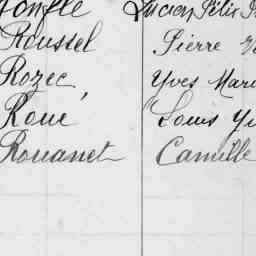 Lucien Félix
Roussel Pierre
Rozec Yves Mari
Roué Louis
Rouanet Camille